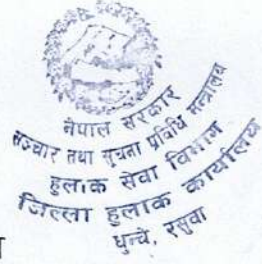 नेपाल सरकार
सञ्चार तथा सूचना प्रविधि मन्त्रालय
हुलाक सेवा विभाग
जिल्ला हुलाक कार्यालय
धुन्चे, रसुवा